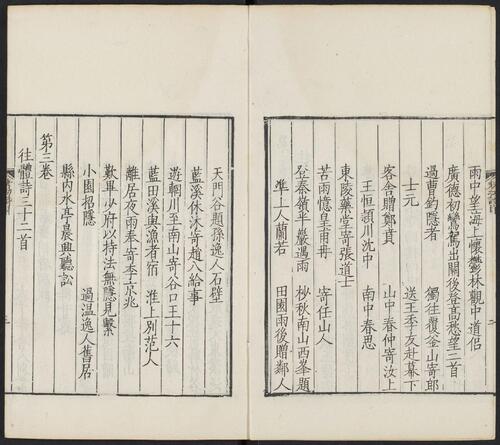 雨中望海上懷鬱林觀中道侶
廣德初鑾駕出關後登高愁望二首
過曹鈞隱者 獨往覆釜山寄郎
士元 送王季友赴幕下
客舍贈鄭賁 山中春仲寄汝上
王恒潁川沈中 南中春思
東陵藥堂寄張道士
苦雨憶皇甫冉 寄任山人
登秦嶺半巖遇雨 杪秋南山西峯題
準上人蘭若 田園雨後贈鄰人
天門谷題孫逸人石壁
藍溪休沐寄趙八給事
遊輞川至南山寄谷口王十六
藍田溪與漁者宿 淮上別范人
離居夜雨奉寄李京兆
歎畢少府以持法無隱見繫
小園招隱 過温逸人舊居
縣內水亭晨興聽訟
第三卷
往體詩三十二首